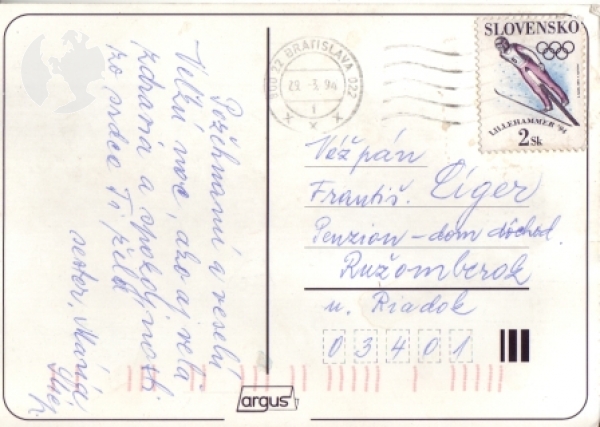 Požehnanú a veselú
Veľkú noc, ako aj veľa
zdravia a spokojnosti
zo srdca Ti želá
sestra Mária
800 22 BRATISLAVA 022
29. -3. 94
1
x x x
SLOVENSKO
LILLEHAMMER '94
2 Sk
Váž pán
Františ. Ciger
Penzion - dom dôchod.
Ružomberok
u. Riadok
0 3 4 0 1
argus